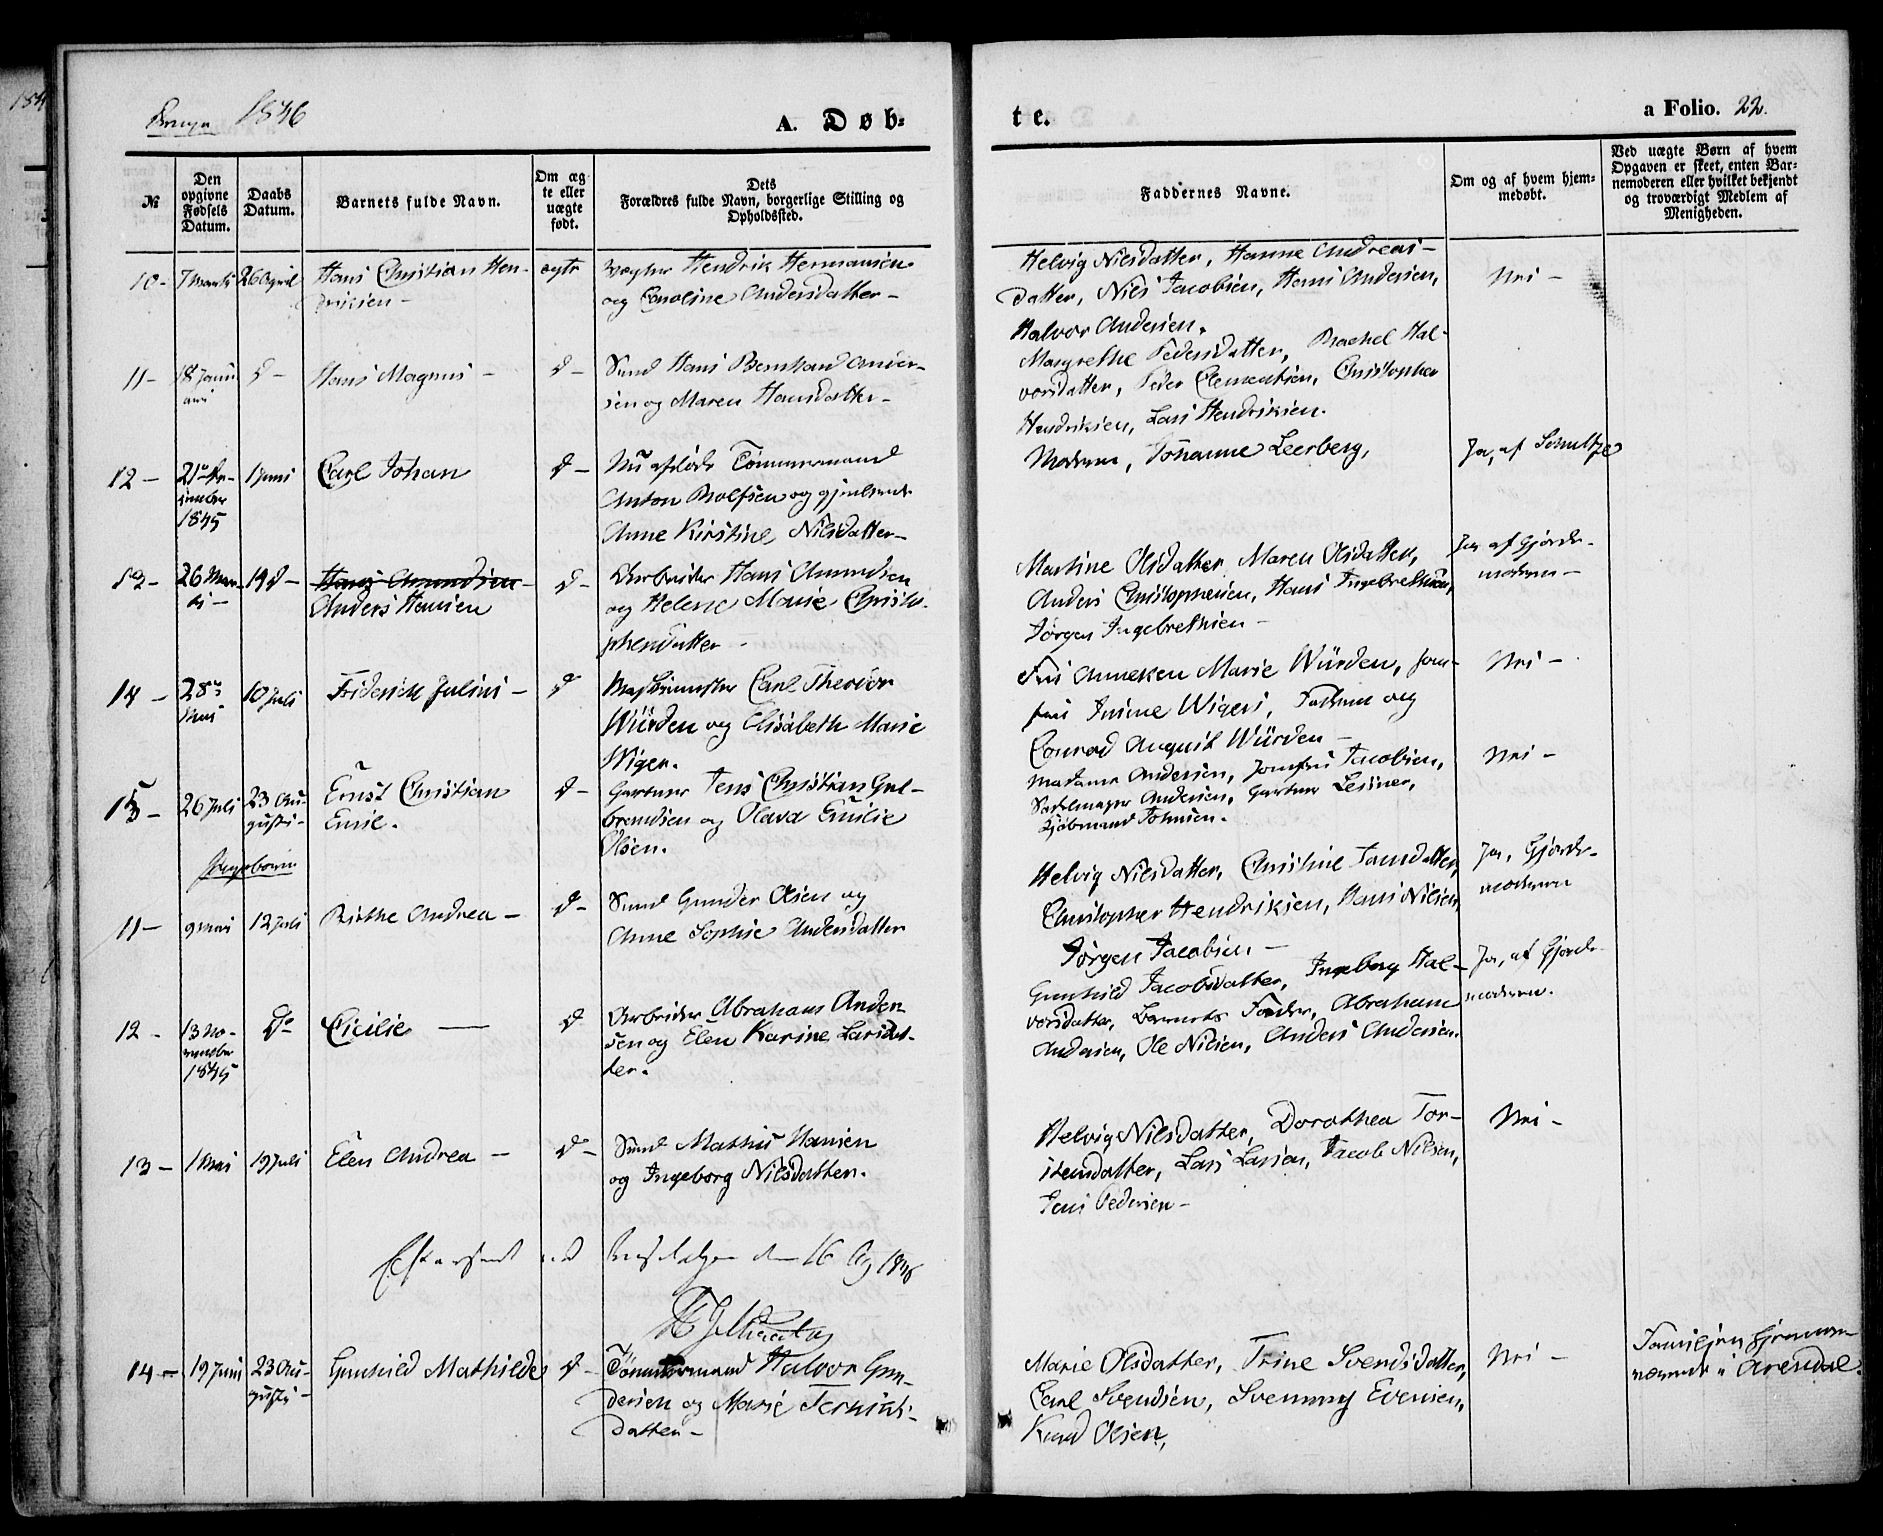 1846
A. Døb-
te.
a Folio. 22.
№
Den opgivne Fødsels Datum.
Daabs Datum.
Barnets fulde Navn.
Om ægte eller uægte født.
Dets
Forældres fulde Navn, borgerlige Stilling og
Opholdssted.
Faddernes Navne.
Om og af hvem hjem-
medøbt.
Ved uægte Børn af hvem
Opgaven er skeet, enten Bar-
nemoderen eller hvilket bekjendt
og troværdigt Medlem af
Menigheden.
10- 7 Marts 26 April Hans Christian Hen-
driksen - ægte Vægter Hendrik Hermansen
og Caroline Andersdatter -
Helvig Nilsdatter, Hanne Andreas-
datter, Niels Jacobsen, Hans Andersen,
Halvor Andersen.
Nei -
11- 18 Janu
ari d- Hans Magnus - d- Smed Hans Bernhard Ander-
sen og Maren Hansdatter -
Margrethe Pedersdatter, Rachel Hal-
vorsdatter, Peder Clementsen, Christopher
Hendriksen, Lars Hendriksen.
12- 21 De-
cember
1845 1 Juni Carl Johan d- Nu afdøde Tømmermand
Anton Rolfsen og gjenlevende
Anne Kirstine Nilsdatter -
Moderen, Johanne Leerberg,
Ja, af Schultze
13- 26 Mar-
ts - 19 d- Hans Amundsen
Anders Hansen d- Arbeider Hans Amundsen
og Helene Marie Christo-
phersdatter -
Martine Olsdatter Maren Olsdatter,
Anders Christophersen, Hans Ingebrethsen,
Jørgen Ingebrethsen -
Ja af Gjorde-
moderen -
14- 28
Mai 10 Juli Friderich Julius - d Carl Theodor
Würden og Elisabeth Marie
Wiger.
Anneken Marie Würden, Jom-
fru Wigers, Faderen og
Conrad August Würden -
Nei -
15- 26 Juli 23 Au-
gusti - Ernst Christian
Emil. d- Gartner Jens Christian Gul-
brandsen og Olava Emilie
Olsen.
Madame Andersen, Jomfru Jacobsen,
Sadelmager Andersen, Gartner Lessner,
Kjøbmand Johnsen.
Nei -
Pigebørn
11- 9 Mai 12 Juli Birthe Andrea - d- Smed Gunder Olsen og
Anne Sophie Andersdatter
Helvig Nilsdatter, Christine Jansdatter,
Christopher Hendriksen, Hans Nilsen,
Jørgen Jacobsen -
Ja, Gjorde-
moderen
12- 13 No-
vember
1845 do Cicilie - d Arbeider Abraham Ander-
sen og Elen Karine Larsdat-
ter.
Gunhild Jacobsdatter, Ingeborg Hal-
vorsdatter, Barnets Fader, Abraham
Andersen, Ole Nilsen, Anders Andersen.
Ja, af Gjorde-
moderen.
13- 1 Mai 19 Juli Elen Andrea - d- Smed Mathis Hansen
og Ingeborg Nilsdatter.
Helvig Nilsdatter, Dorothea Tor-
stensdatter, Lars Larsen, Jacob Nilsen,
Jens Pedersen -
Nei -
Efterseet ved den 16 Aug 1846
14- 19 Juni 23 Au-
gusti - Gunhild Mathilde d- Tømmermand Halvor Gun-
dersen og Marie
datter -
Marie Olsdatter, Trine Svendsdatter,
Carl Svendsen, Svennung Evensen,
Knud Olsen,
Nei -
Familien hjemme-
værende i Arendal.